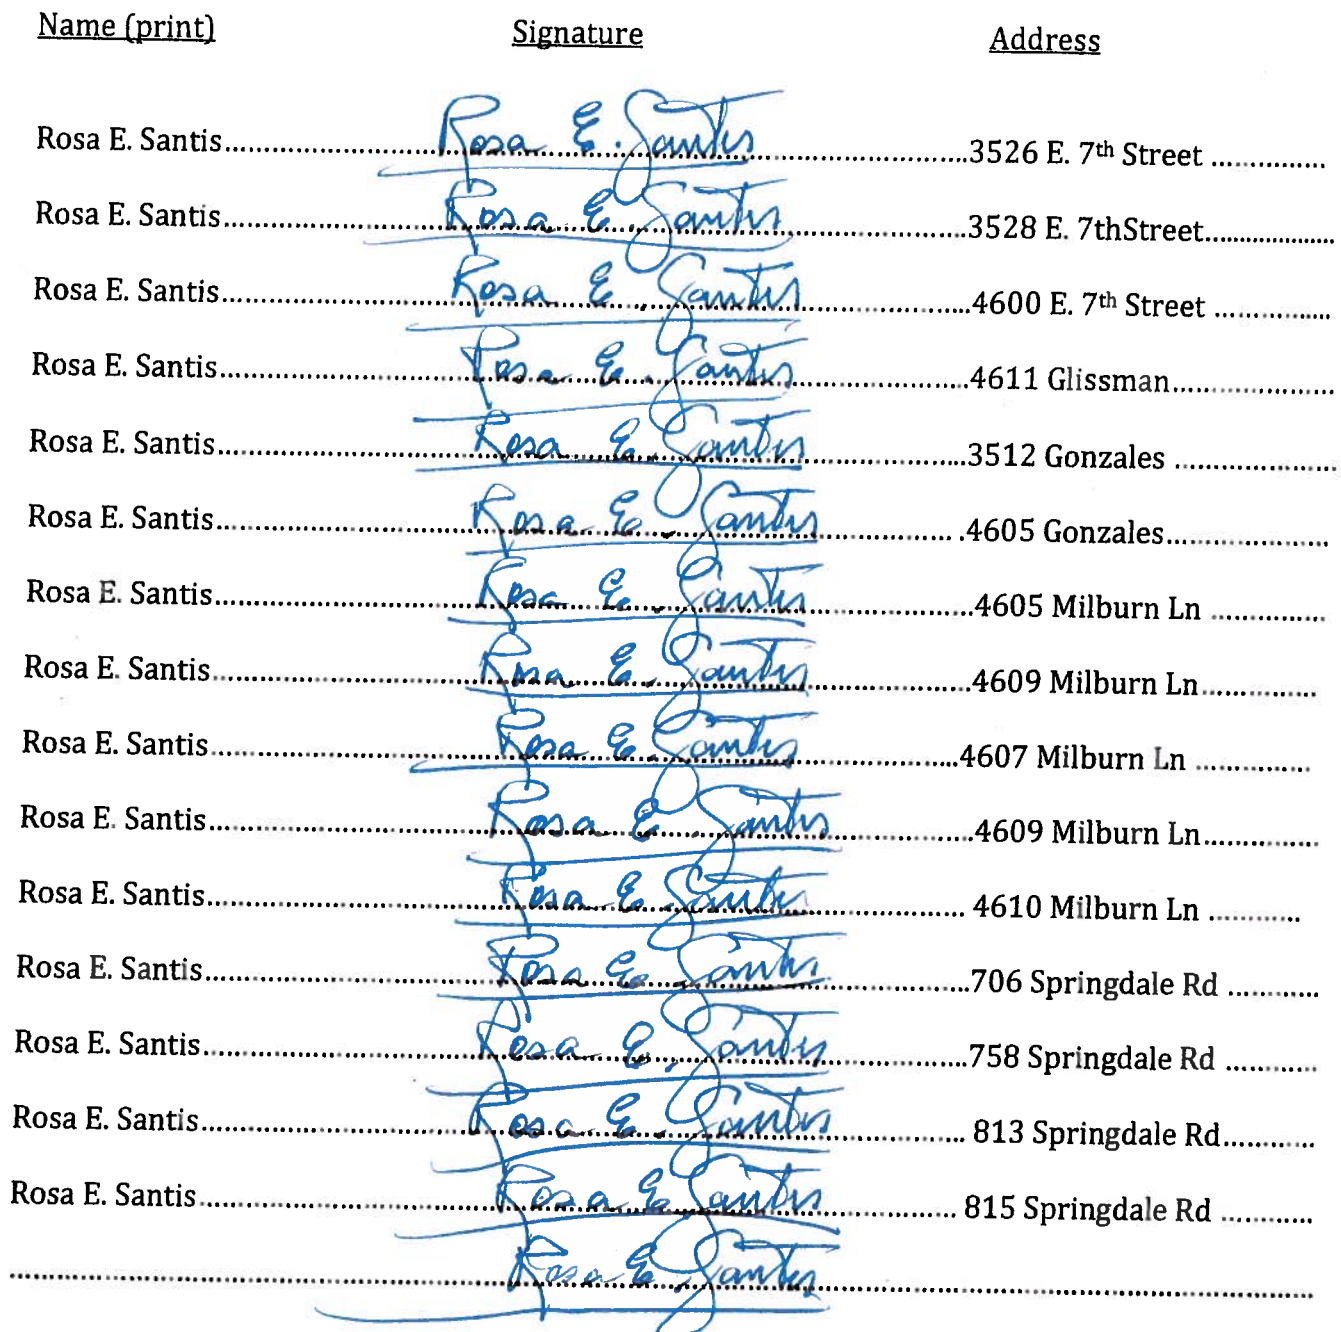 Name (print) Signature Address
Rosa E. Santis.......... Rosa E. Santis ..........3526 E. 7th Street ..........
Rosa E. Santis.......... Rosa E. Santis ..........3528 E. 7thStreet..........
Rosa E. Santis.......... Rosa E. Santis ..........4600 E. 7th Street ..........
Rosa E. Santis.......... Rosa E. Santis ..........4611 Glissman..........
Rosa E. Santis.......... Rosa E. Santis ..........3512 Gonzales ..........
Rosa E. Santis.......... Rosa E. Santis .......... .4605 Gonzales..........
Rosa E. Santis.......... Rosa E. Santis ..........4605 Milburn Ln ..........
Rosa E. Santis.......... Rosa E. Santis ..........4609 Milburn Ln..........
Rosa E. Santis.......... Rosa E. Santis ..........4607 Milburn Ln ..........
Rosa E. Santis.......... Rosa E. Santis ..........4609 Milburn Ln..........
Rosa E. Santis.......... Rosa E. Santis .......... 4610 Milburn Ln ..........
Rosa E. Santis.......... Rosa E. Santis ..........706 Springdale Rd ..........
Rosa E. Santis.......... Rosa E. Santis ..........758 Springdale Rd ..........
Rosa E. Santis.......... Rosa E. Santis .......... 813 Springdale Rd..........
Rosa E. Santis.......... Rosa E. Santis .......... 815 Springdale Rd ..........
.......... Rosa E. Santis ..........